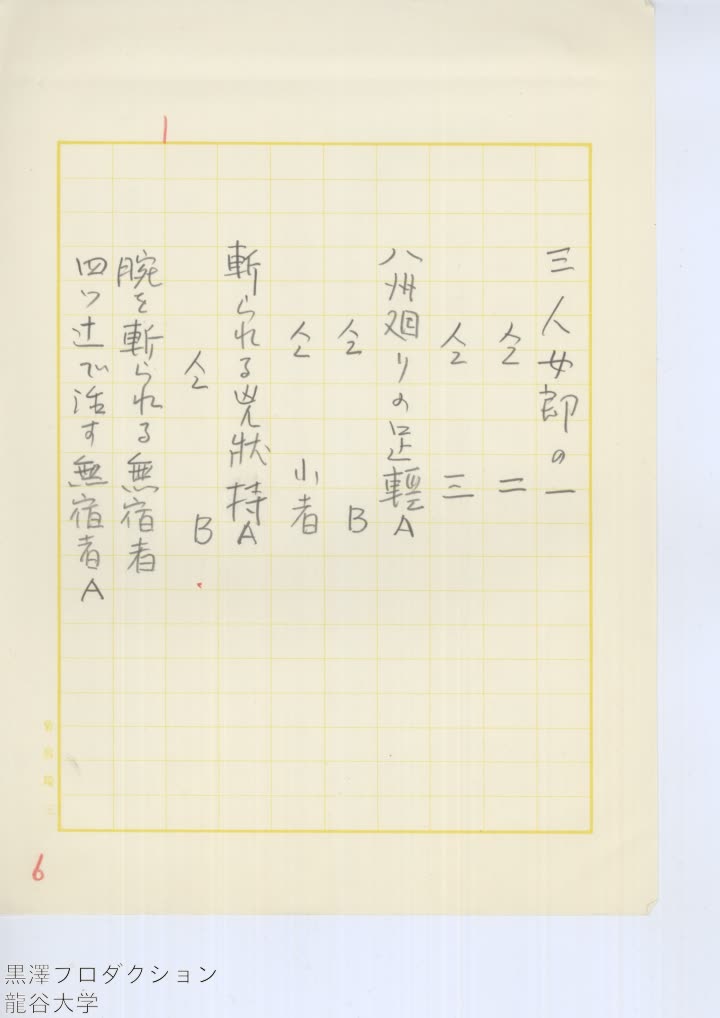 三人女郎の一
仝 二
仝 三
八州廻りの足軽A
仝 B
仝 小者
斬られる兇状持A
仝 B
腕を斬られる無宿者
四ツ辻で活す無宿者A
1
6
黒澤フロダクション
龍谷大学